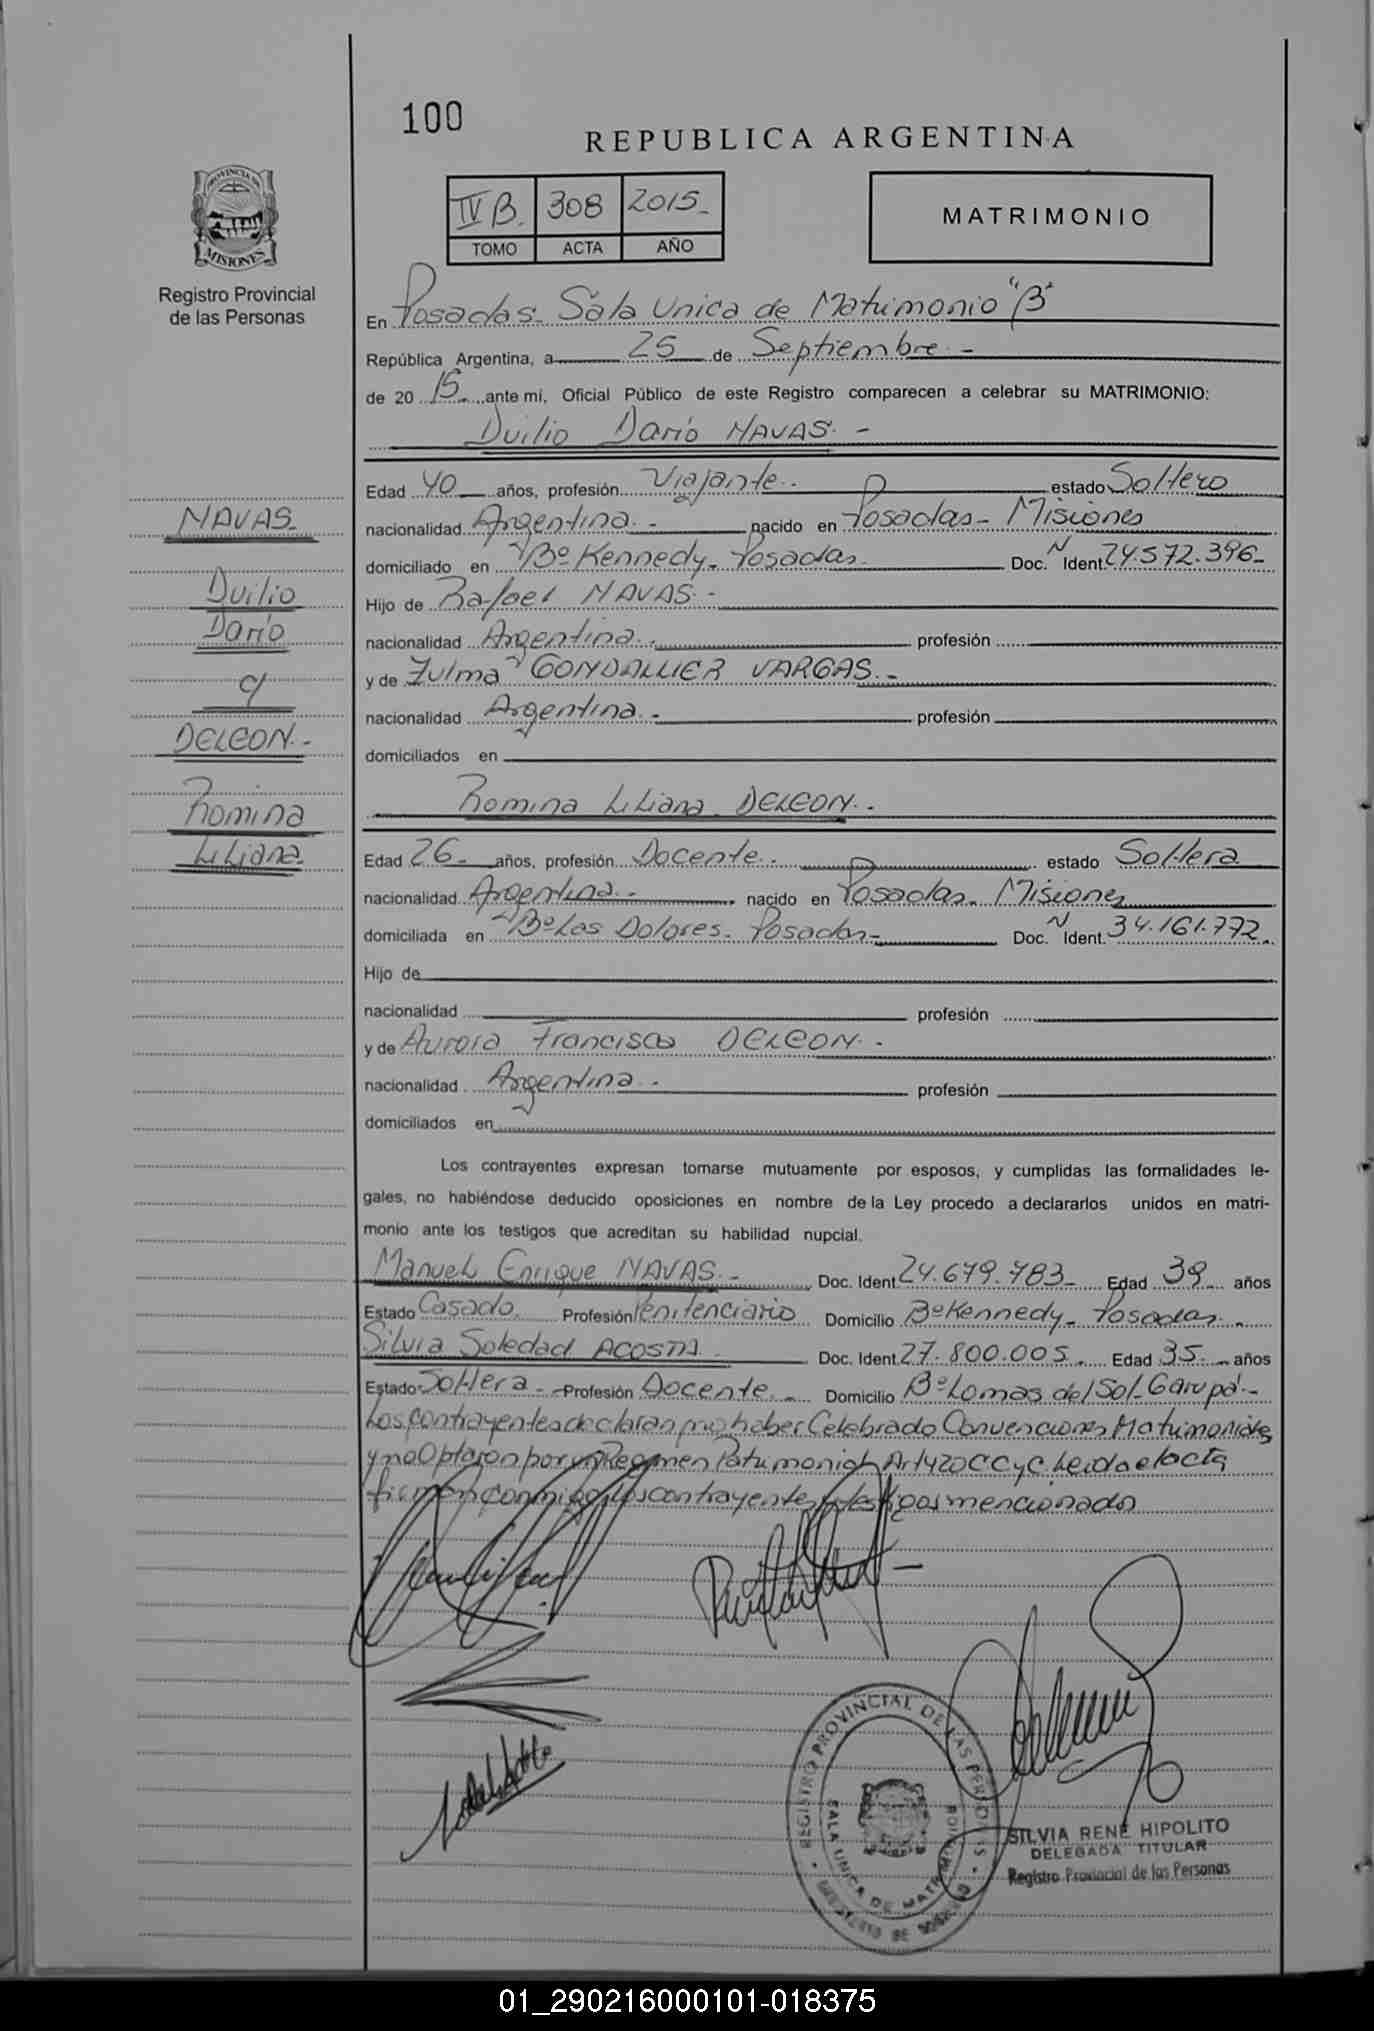 100
REPUBLICA ARGENTINA
IV B. 308 2015_
TOMO ACTA AÑO
MATRIMONIO
PROVINCIA DE
MISIONES
Registro Provincial
de las Personas
En Posadas- Sala Unica de Matrimonio "B"
República Argentina, a 25 de Septiembre.-
de 20 15 ante mi, Oficial Público de este Registro comparecen a celebrar su MATRIMONIO:
Duilio Darío NAVAS.-
Edad 40 años, profesión Viajante. estado Soltero
nacionalidad Argentina.- nacido en Posadas- Misiones
domiciliado en Bº Kennedy- Posadas. Doc. N Ident. 24.572.396-
Hijo de Rafael NAVAS.-
nacionalidad Argentina. profesión
y de Zulma GONDALLIER VARGAS.-
nacionalidad Argentina.- profesión
domiciliados en
Romina Liliana DELEON.-
Edad 26- años, profesión Docente. estado Soltera
nacionalidad Argentina.- nacido en Posadas- Misiones
domiciliada en Bº Los Dolores- Posadas- Doc. N Ident. 34.161.772.
Hijo de
nacionalidad profesión
y de Aurora Francisca DELEON.-
nacionalidad Argentina.- profesión
domiciliados en
NAVAS
Duilio
Darío
c/
DELEON.-
Romina
Liliana
Los contrayentes expresan tomarse mutuamente por esposos, y cumplidas las formalidades le-
gales, no habiéndose deducido oposiciones en nombre de la Ley procedo a declararlos unidos en matri-
monio ante los testigos que acreditan su habilidad nupcial.
Manuel Enrique NAVAS.- Doc. Ident. 24.679.783- Edad 39 años
Estado Casado. Profesión Penitenciario Domicilio Bº Kennedy- Posadas.
Silvia Soledad ACOSTA Doc. Ident. 27.800.005. Edad 35. años
Estado Soltera- Profesión Docente. Domicilio Bº Lomas del Sol- Garupá.-
Los contrayentes declaran no haber Celebrado Convenciones Matrimoniales
y no Optaron por un Regimen Patrimonial Art 420 CC y C. Leida el acta
firman conmigo los contrayentes y testigos mencionados
REGISTRO PROVINCIAL DE LAS PERSONAS
SALA UNICA DE MATRIMONIO
SILVIA RENÉ HIPOLITO
DELEGADA TITULAR
Registro Provincial de las Personas
01_290216000101-018375